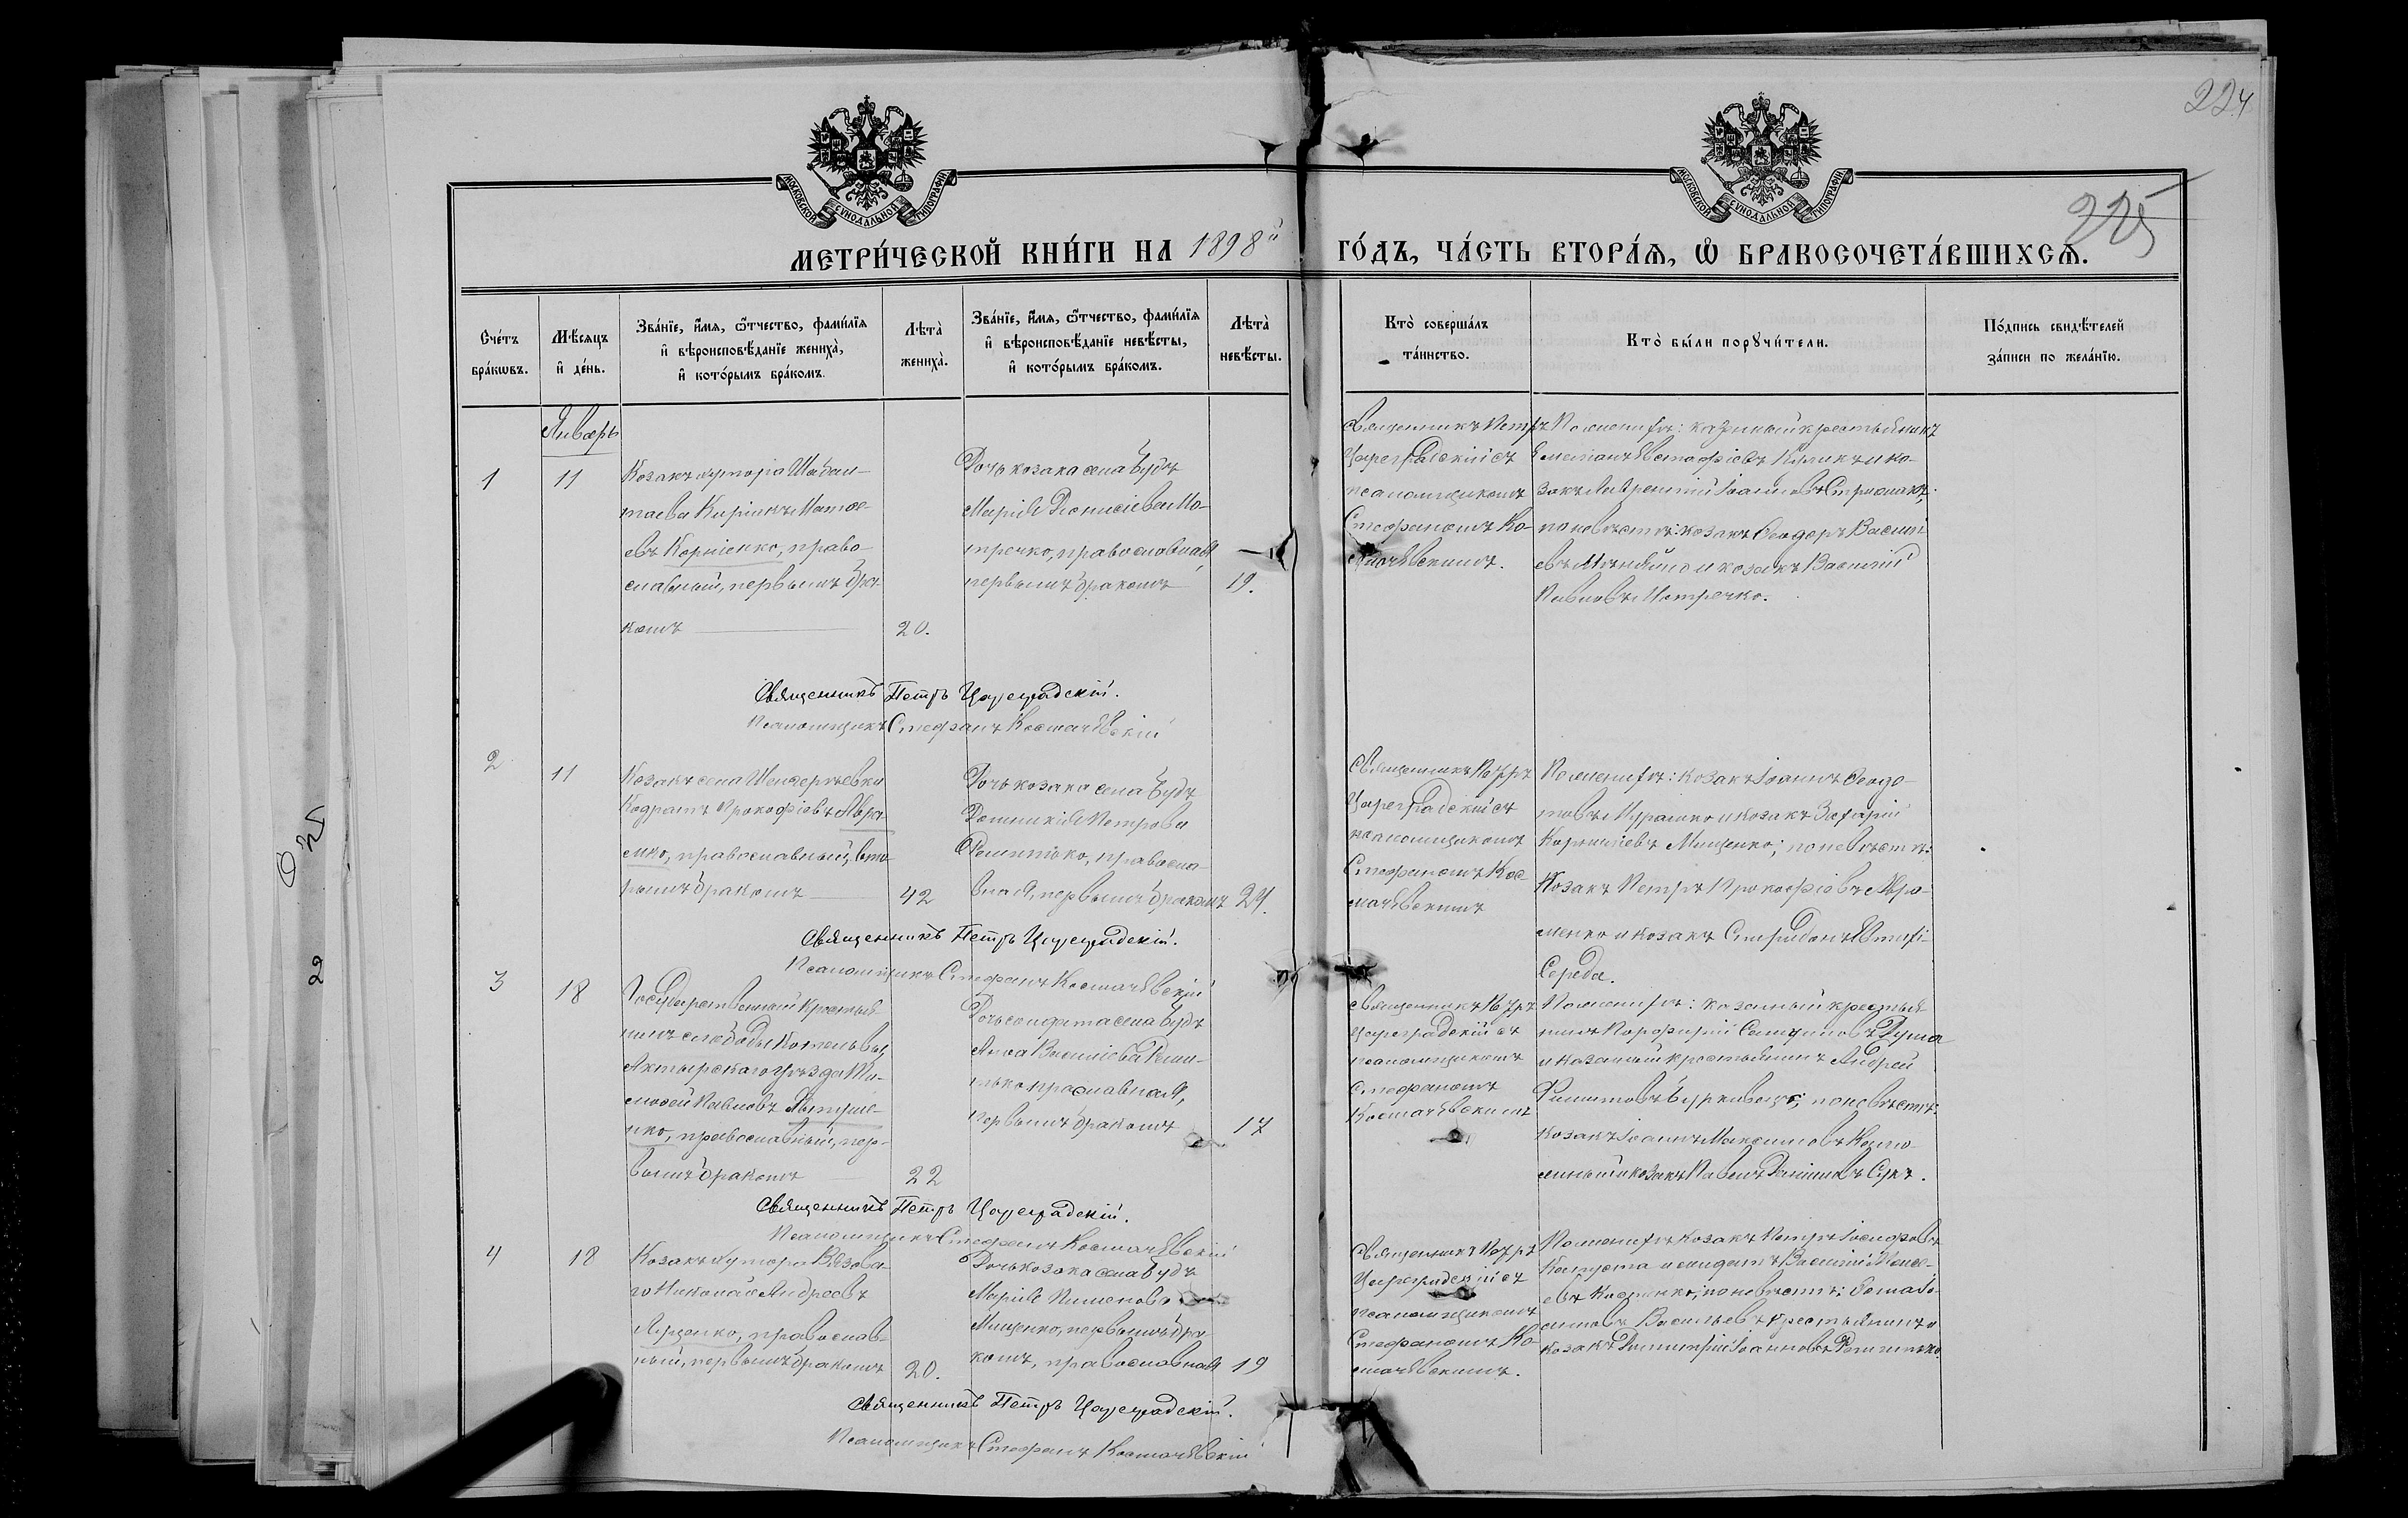 224
225
МОСКОВСКОЙ СУНОДАЛЬНОЙ ТИПОГРАФІИ
МОСКОВСКОЙ СУНОДАЛЬНОЙ ТИПОГРАФІИ
МЕТРИ́ЧЕСКОЙ КНИ́ГИ НА 1898й ГО́ДЪ, ЧА́СТЬ ВТОРА́Ѧ, Ѡ БРАКОСОЧЕТА́ВШИХСѦ.
Сче́тъ
бра́кѡвъ.
Мѣ́сяцъ
и҆ де́нь.
Зва́нїе, и҆́мѧ, ѻ҆́тчество, фами́лїѧ
и҆ вѣроисповѣ́данїе жениха̀,
и҆ кото́рымъ бра́комъ.
Лѣта̀
жениха̀.
Зва́нїе, и҆́мѧ, ѻ҆́тчество, фами́лїѧ
и҆ вѣроисповѣ́данїе невѣ́сты,
и҆ кото́рымъ бра́комъ.
Лѣта̀
невѣ́сты.
Кто̀ соверша́лъ
та́инство.
Кто̀ бы́ли порꙋчи́тели.
По́дпись свидѣ́телей
за́писи по жела́нїю.
Январь
1
11
Козакъ хутора Шабал-
таева Кирикъ Матѳе-
евъ Корніенко, право-
славный, первымъ бра-
комъ
20.
Дочь козака села Будъ
Марія Діонисіева Мо-
тречко, православная,
первымъ бракомъ
19.
Священникъ Петръ
Цареградскій съ
псаломщикомъ
Стефаномъ Ко-
смачевскимъ.
По женихѣ: казенный крестьянинъ
Емеліанъ Евстафіевъ Куликъ и ко-
закъ Лаврентій Іоанновъ
по невѣстѣ: козакъ Ѳеодоръ Васил-
и козакъ Василій
Павловъ Мотречко.
Священникъ Петръ Цареградскій.
Псаломщикъ Стефанъ Космачевскій
2
11
Козакъ села
Кодратъ Прокофіевъ Авра-
менко, православный, вто-
рымъ бракомъ
42
Дочь козака села Будъ
Домникія Петрова
православ-
ная, первымъ бракомъ
24.
Священникъ Петръ
Цареградскій съ
псаломщикомъ
Стефаномъ Кос-
мачевскимъ
По женихѣ: козакъ Іоаннъ Ѳеодо-
товъ Мурашко и козакъ Захарій
Корниліевъ Мищенко; по невѣстѣ:
Козакъ Петръ Прокофіевъ Авра-
менко и козакъ Спиридонъ
Середа.
Священникъ Петръ Цареградскій.
Псаломщикъ Стефанъ Космачевскій
3
18
Государственный крестья-
нинъ слободы Котельвы,
Ахтырскаго уѣзда Ти-
моѳей Павловъ
православный, пер-
вымъ бракомъ
22
Дочь солдата села Будъ
Анна Василіева
православная,
первымъ бракомъ
17
Священникъ Петръ
Цареградскій съ
псаломщикомъ
Стефаномъ
Космачевскимъ
По женихѣ: казенный крестья-
нинъ Порфирій Дума
и казенный крестьянинъ Андрей
Филиповъ по невѣстѣ:
козакъ Іоаннъ Максимовъ
и козакъ Павелъ Даніиловъ Сукъ.
Священникъ Петръ Цареградскій.
Псаломщикъ Стефанъ Космачевскій
4
18
Козакъ хутора Вязова-
го Николай Андреевъ
Яценко, православ-
ный, первымъ бракомъ
20.
Дочь козака села Будъ
Марія Пименова
Мищенко, первымъ бра-
комъ, православная
19
Священникъ Петръ
Цареградскій съ
псаломщикомъ
Стефаномъ Ко-
смачевскимъ.
По женихѣ козакъ Петръ Іосифовъ
Капуста и солдатъ Василій
по невѣстѣ:
Васильевъ крестьянинъ и
козакъ Димитрій Іоанновъ
Священникъ Петръ Цареградскій.
Псаломщикъ Стефанъ Космачевскій